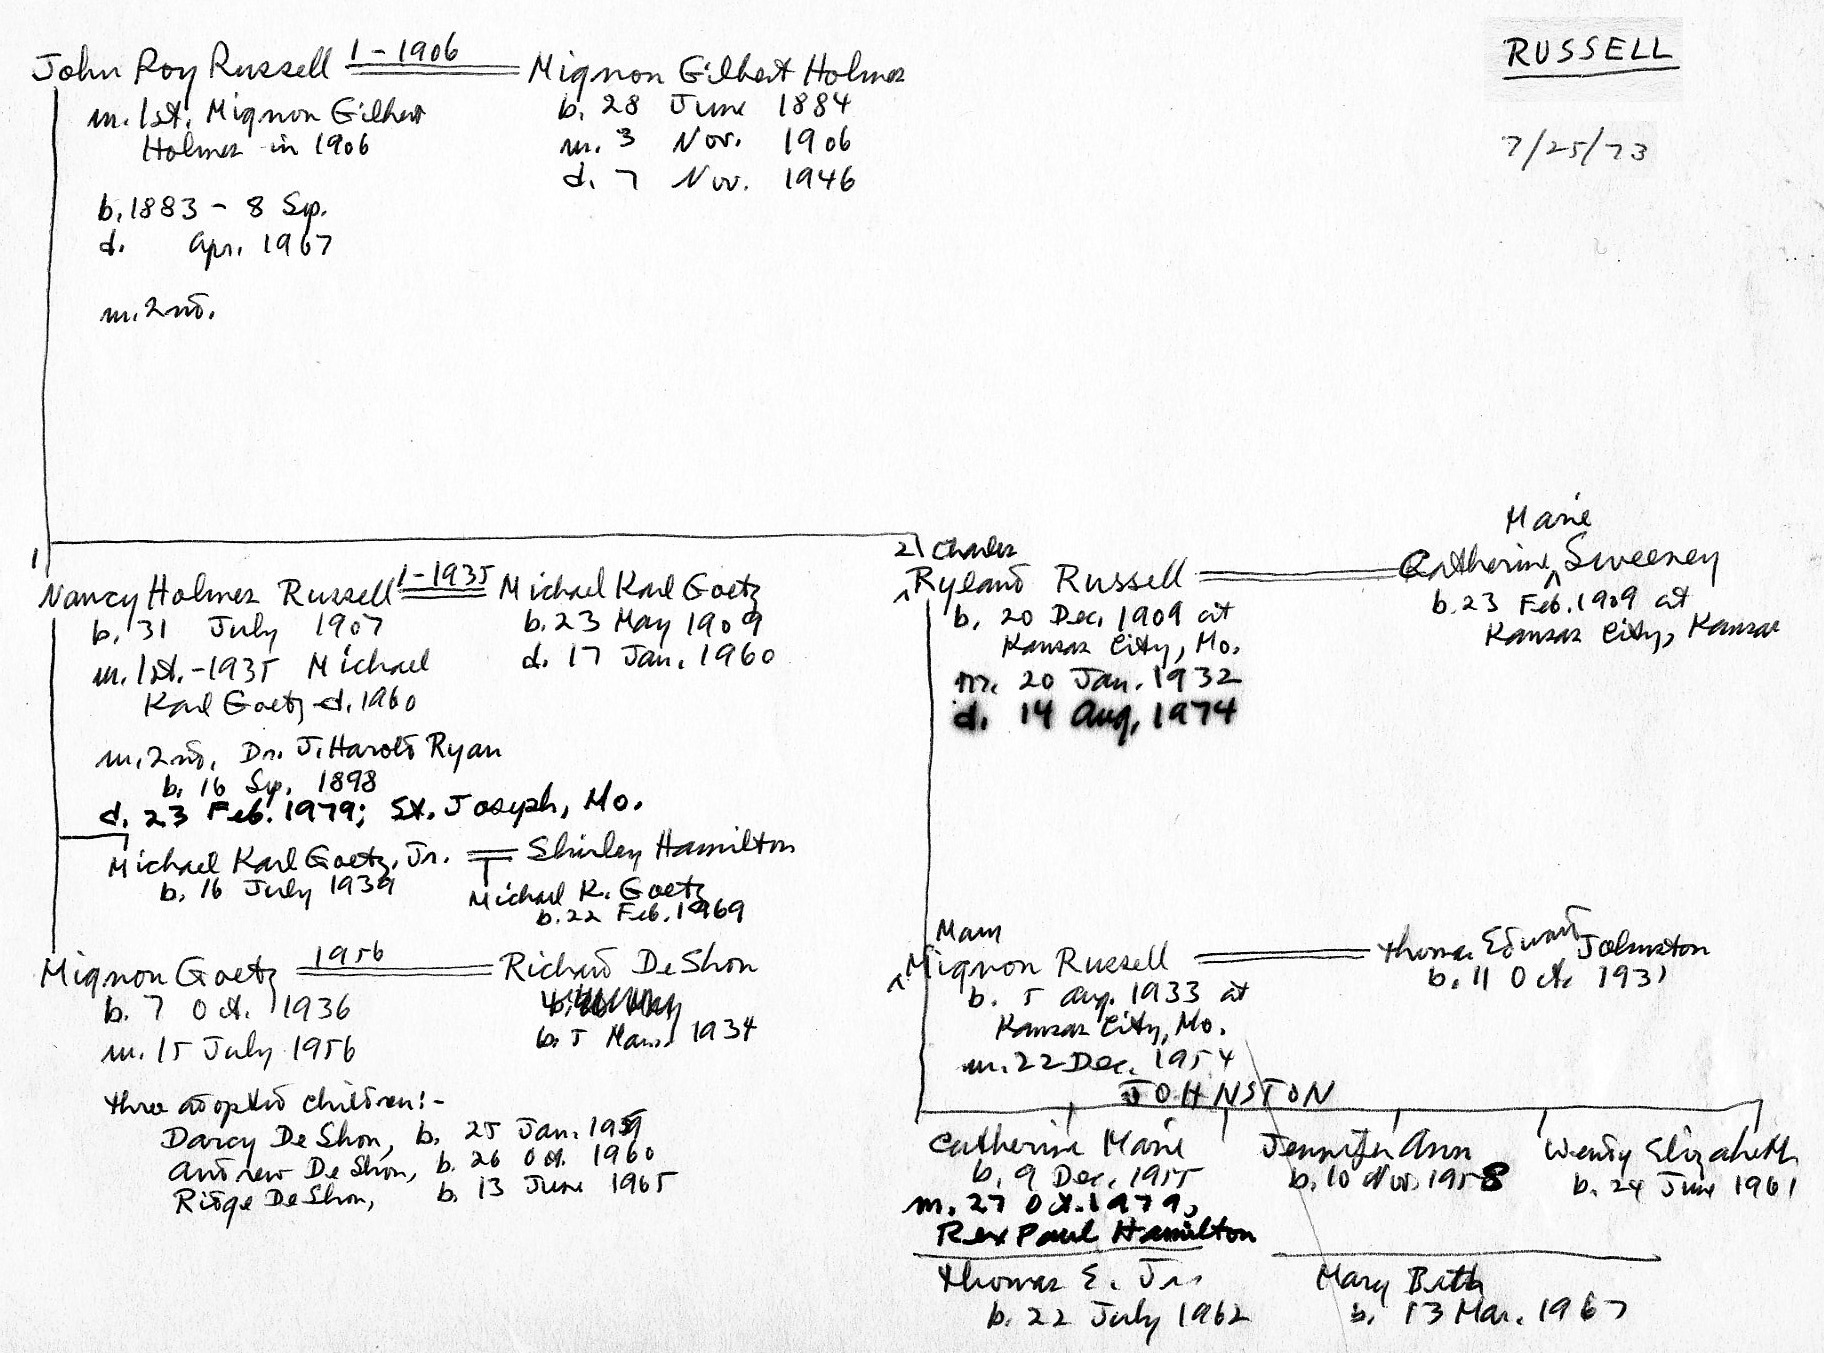 RUSSELL
7/25/73
John Roy Russell 1-1906 Mignon Gilbert Holmes
m. 1st. Mignon Gilbert
Holmes in 1906
b. 28 June 1884
m. 3 Nov. 1906
d. 7 Nov. 1946
b. 1883 - 8 Sep.
d. Apr. 1967
m. 2nd.
1
Nancy Holmes Russell 1-1935 Michael Karl Goetz
b. 31 July 1907
m. 1st. -1935 Michael
Karl Goetz -d. 1960
b. 23 May 1909
d. 17 Jan. 1960
m. 2nd. Dr. J. Harold Ryan
b. 16 Sep. 1898
d. 23 Feb. 1979; St. Joseph, Mo.
Michael Karl Goetz, Jr. Shirley Hamilton
b. 16 July 1939
Michael K. Goetz
b. 22 Feb. 1969
Mignon Goetz 1956 Richard DeShon
b. 7 Oct. 1936
m. 15 July 1956
b. 5 Mar. 1934
three adopted children:-
Darcy DeShon, b. 25 Jan. 1959
Andrew DeShon, b. 26 Oct. 1960
Ridge DeShon, b. 13 June 1965
2 Charles
Ryland Russell
b. 20 Dec. 1909 at
Kansas City, Mo.
m. 20 Jan. 1932
d. 14 Aug. 1974
Marie
Catherine Sweeney
b. 23 Feb. 1909 at
Kansas City, Kansas
Mignon Russell
b. 5 Aug. 1933 at
Kansas City, Mo.
m. 22 Dec. 1954
Thomas Edward Johnston
b. 11 Oct. 1931
JOHNSTON
Catherine Marie
b. 9 Dec. 1955
m. 27 Oct. 1979,
Rex Paul Hamilton
Jennifer Ann
b. 10 Nov. 1958
Wendy Elizabeth
b. 24 June 1961
Thomas E. Jr.
b. 22 July 1962
Mary Beth
b. 13 Mar. 1967